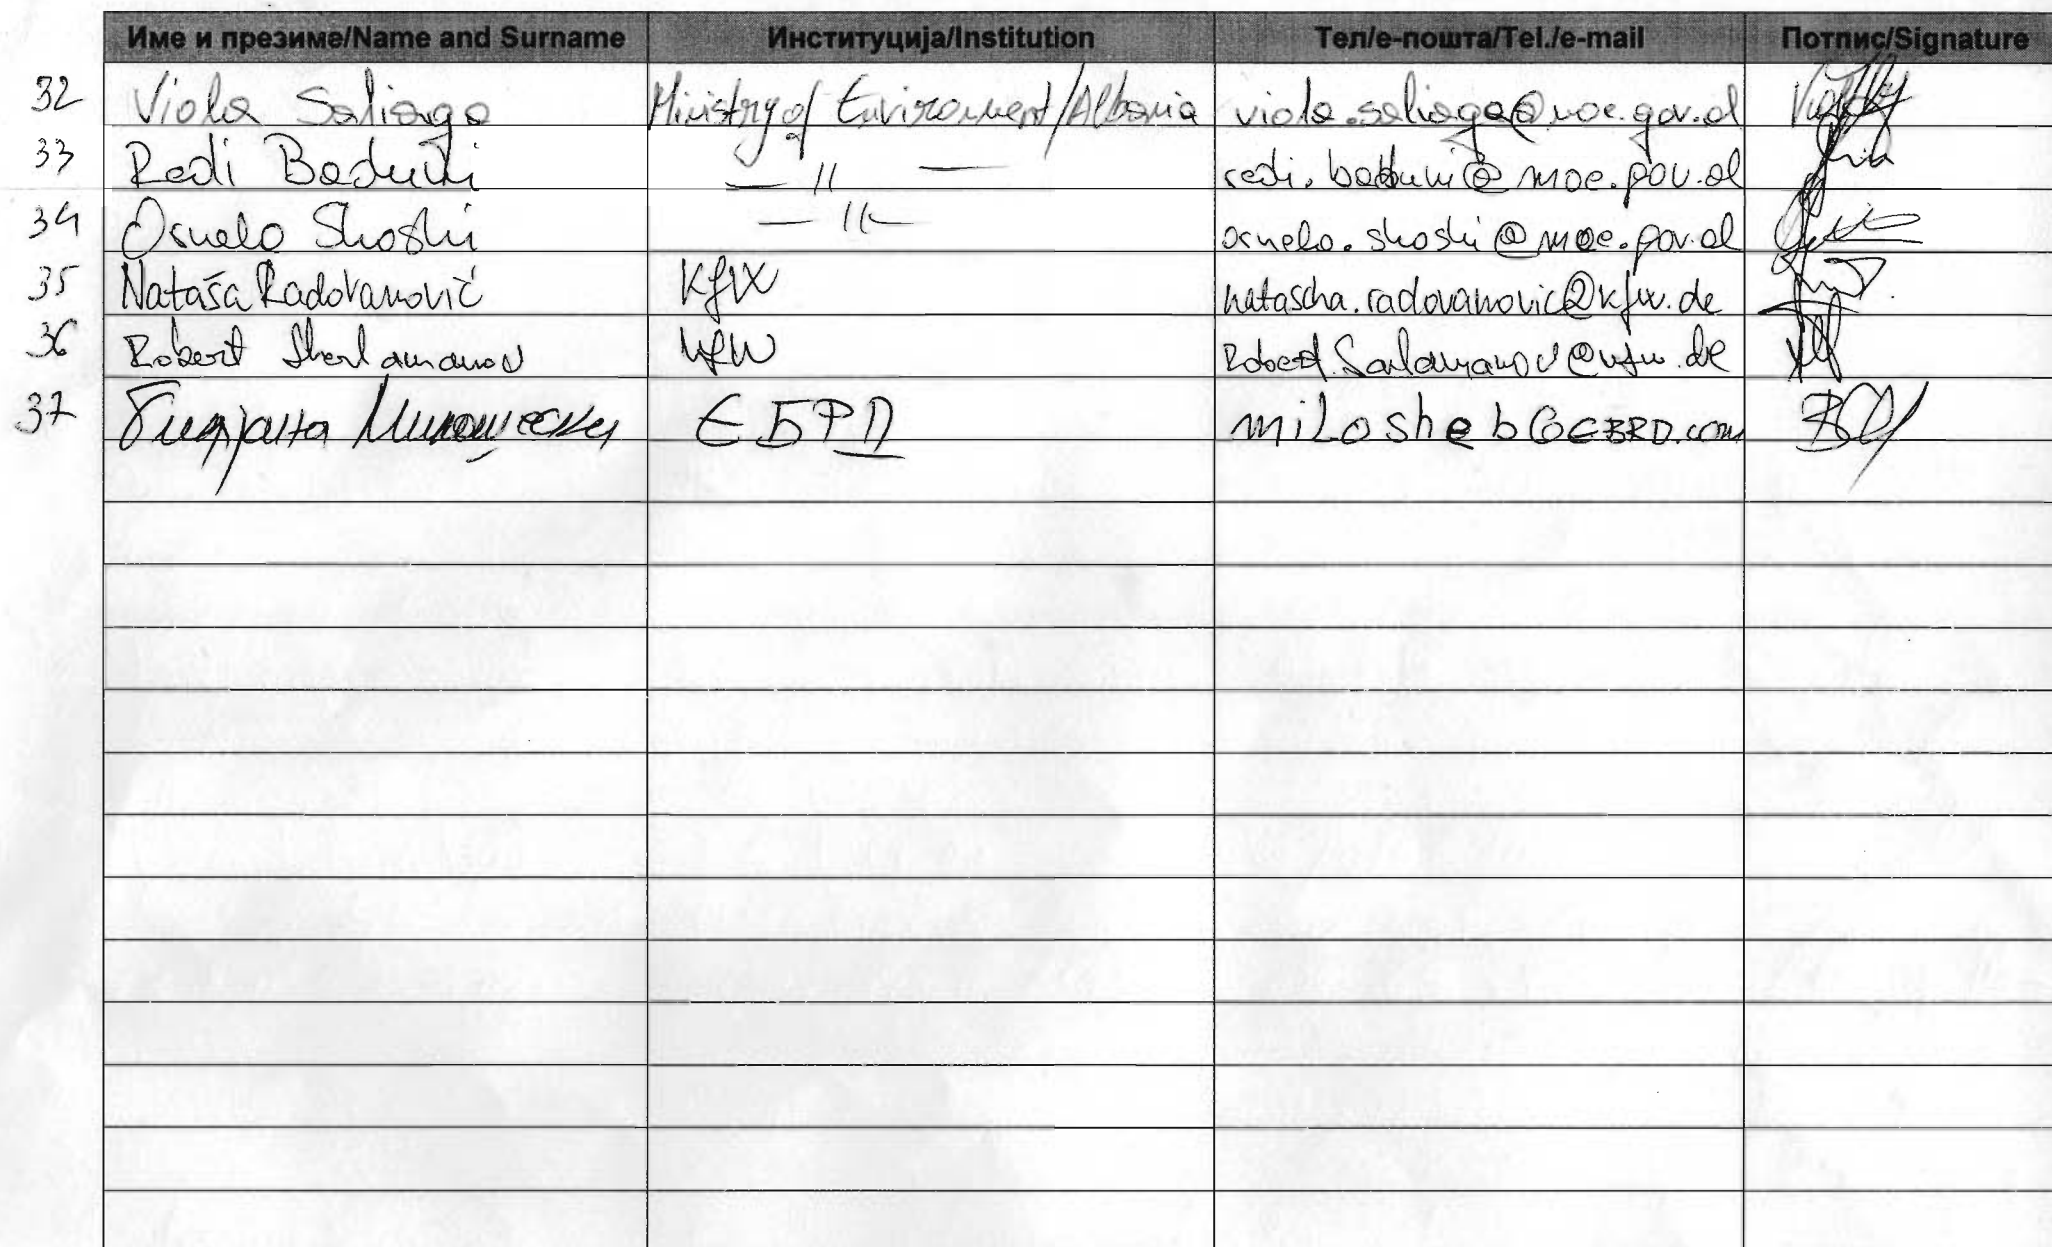 Име и презиме/Name and Surname Институција/Institution Тел/е-пошта/Tel./e-mail Потпис/Signature
32 Viola Saliaga Ministry of Environment/Albania viola.saliaga@moe.gov.al
33 Redi Baduni — 11 — redi.baduni@moe.gov.al
34 Ornela Shoshi — 11 — ornela.shoshi@moe.gov.al
35 Nataša Radovanović KfW natascha.radovanovic@kfw.de
36 Robert kfW
37 Билјана Милошевски ЕБРД miLosheb@EBRD.com